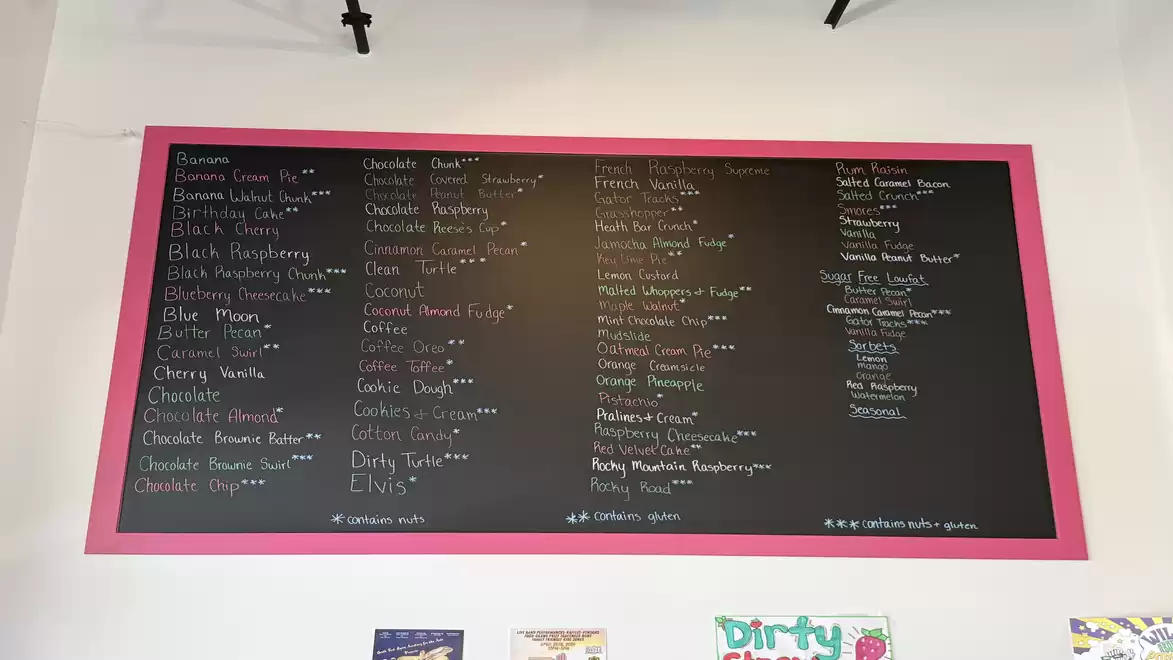 Banana
Banana Cream Pie**
Banana Walnut Chunk***
Birthday Cake**
Black Cherry
Black Raspberry
Black Raspberry Chunk***
Blueberry Cheesecake***
Blue Moon
Butter Pecan*
Caramel Swirl**
Cherry Vanilla
Chocolate
Chocolate Almond*
Chocolate Brownie Batter**
Chocolate Brownie Swirl***
Chocolate Chip***
Chocolate Chunk***
Chocolate Covered Strawberry*
Chocolate Peanut Butter*
Chocolate Raspberry
Chocolate Reese's Cup*
Cinnamon Caramel Pecan*
Clean Turtle***
Coconut
Coconut Almond Fudge*
Coffee
Coffee Oreo**
Coffee Toffee*
Cookie Dough***
Cookies & Cream***
Cotton Candy*
Dirty Turtle***
Elvis*
French Raspberry Supreme
French Vanilla
Gator Tracks***
Grasshopper**
Heath Bar Crunch*
Jamocha Almond Fudge*
Key Lime Pie**
Lemon Custard
Malted Whoppers & Fudge**
Maple Walnut*
Mint Chocolate Chip***
Mudslide
Oatmeal Cream Pie***
Orange Creamsicle
Orange Pineapple
Pistachio*
Pralines & Cream*
Raspberry Cheesecake***
Red Velvet Cake**
Rocky Mountain Raspberry***
Rocky Road***
Rum Raisin
Salted Caramel Bacon
Salted Crunch***
Smores***
Strawberry
Vanilla
Vanilla Fudge
Vanilla Peanut Butter*
Sugar Free Lowfat
Butter Pecan*
Caramel Swirl
Cinnamon Caramel Pecan***
Gator Tracks***
Vanilla Fudge
Sorbets
Lemon
mango
orange
Red Raspberry
Watermelon
Seasonal
* contains nuts
** contains gluten
*** contains nuts + gluten
Dirty